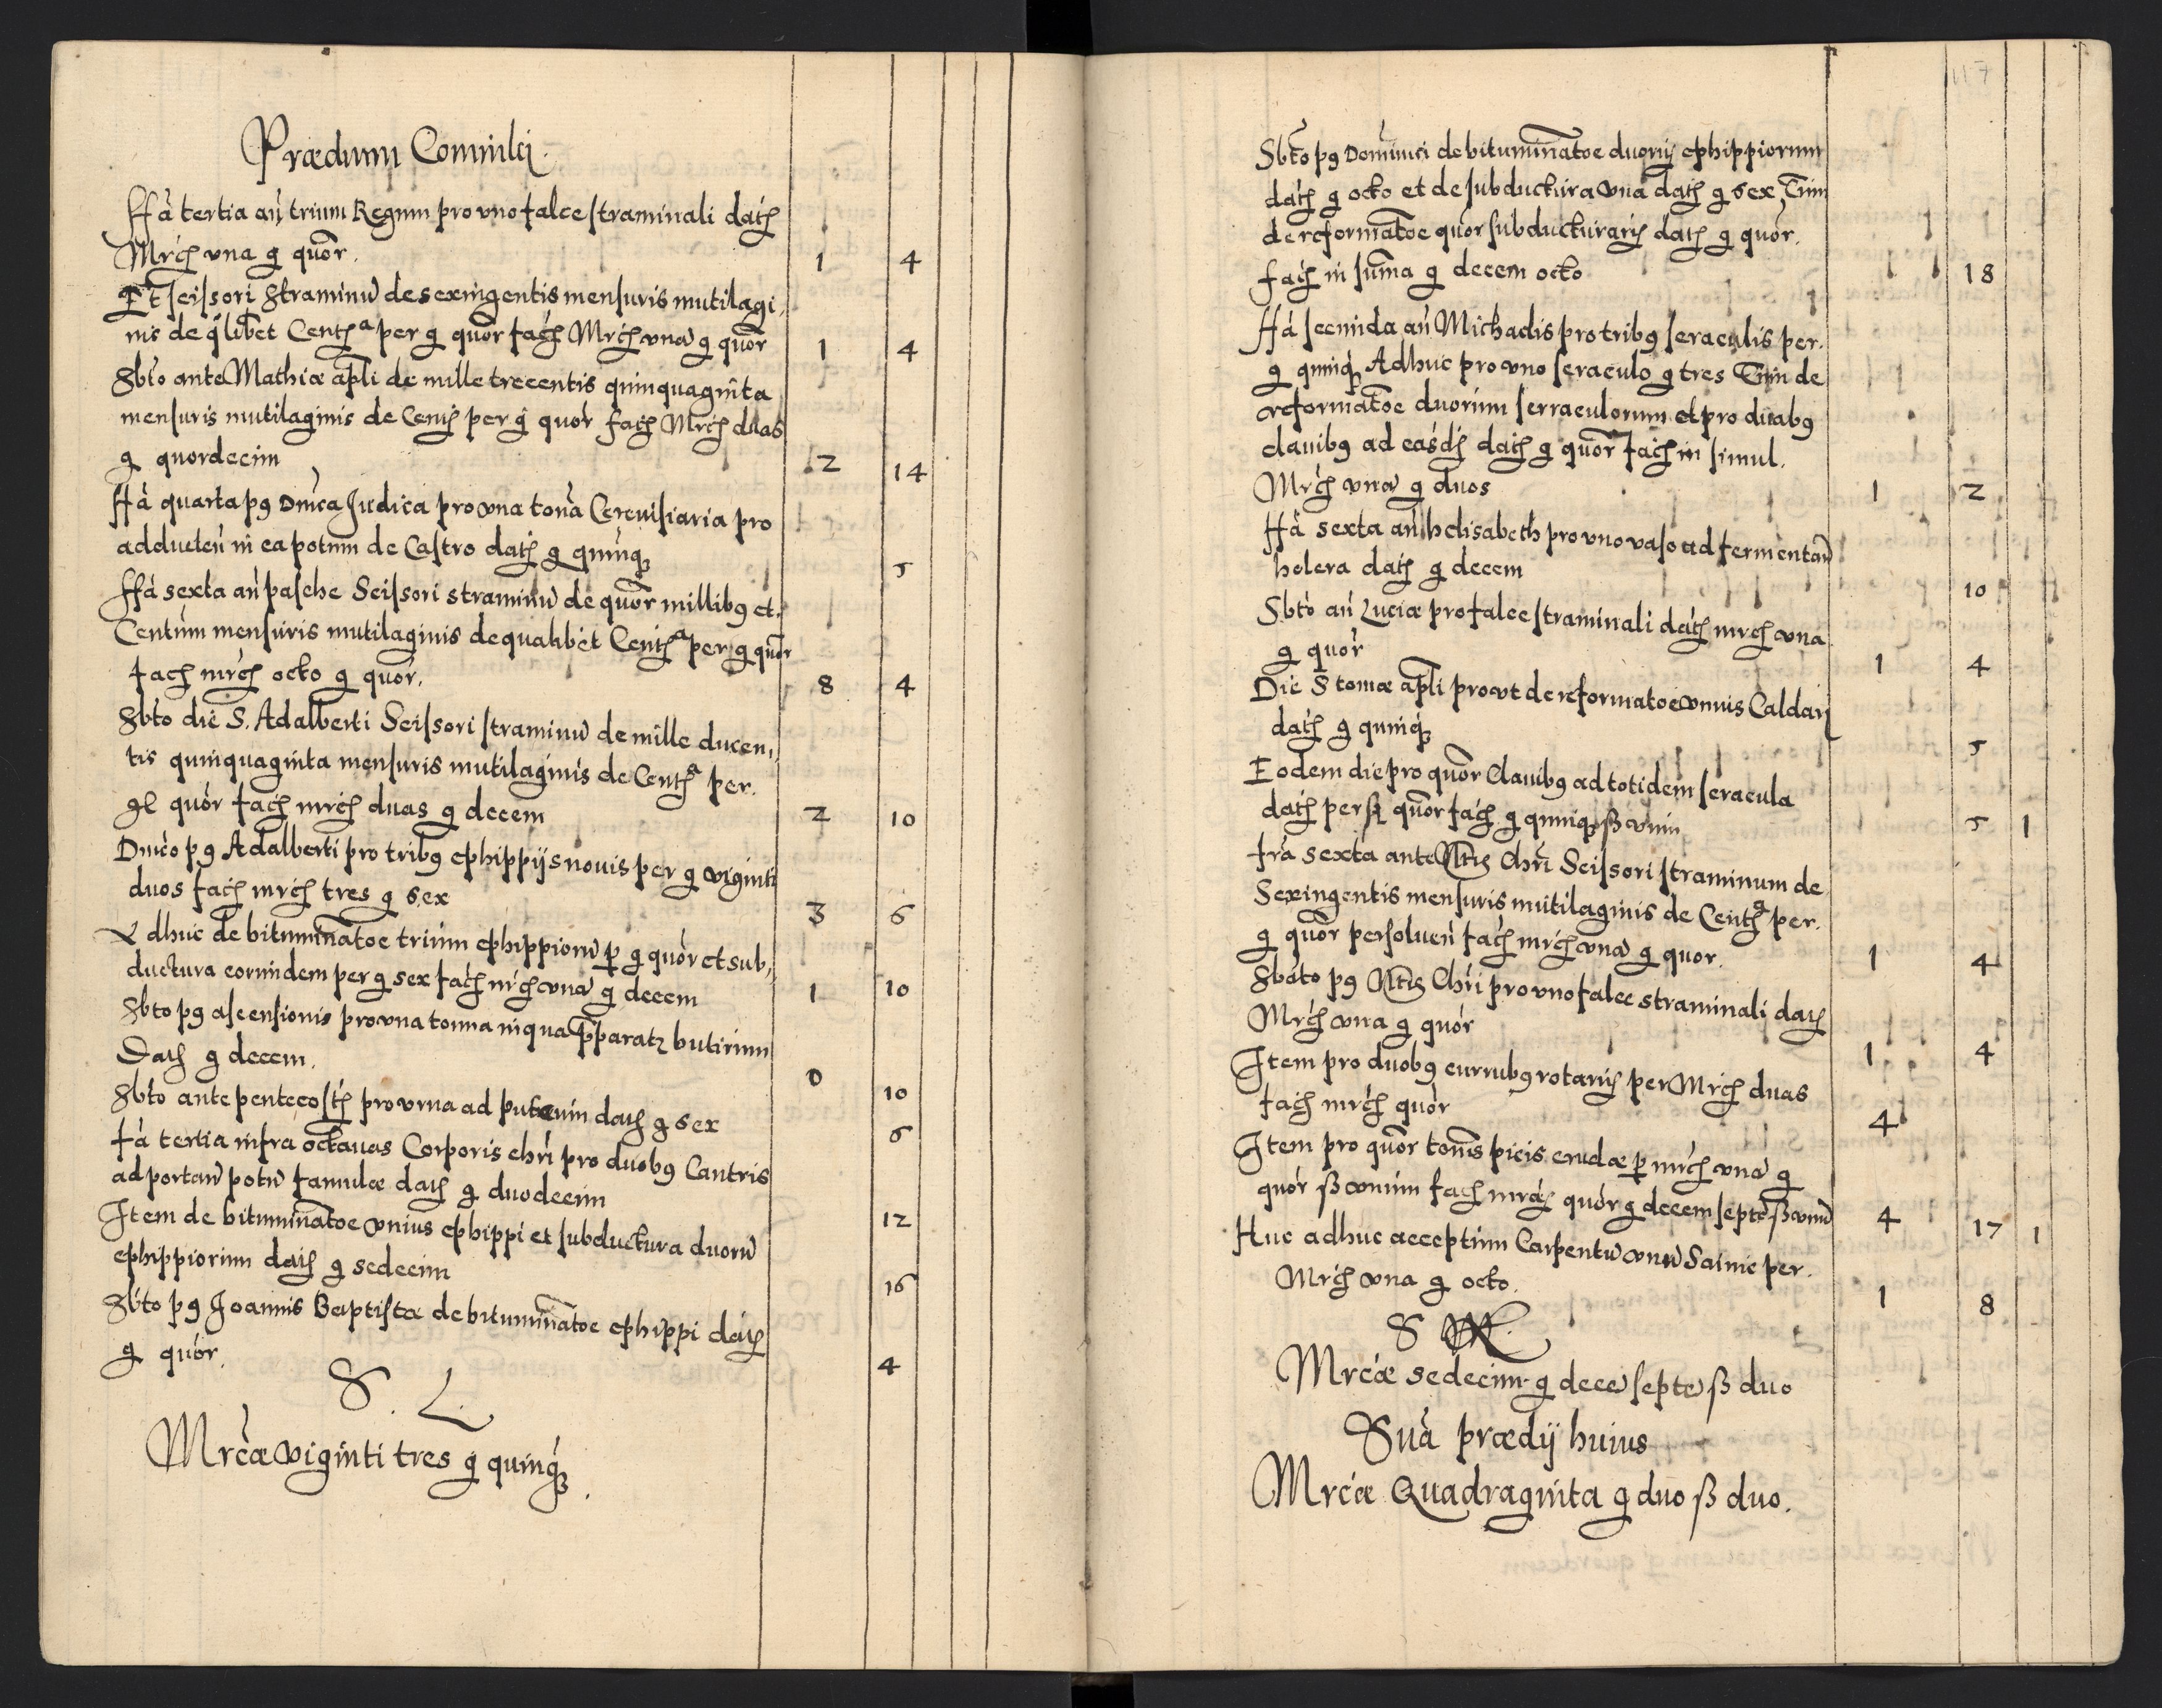 Prædium Comvilcj.
Ffâ tertia añ trium Regum pro vno falce straminali datȝ
Mrcȝ vna g̃ quõr. 1 4
Et scissori straminũ de sexingentis mensuris mutilagi,
nis de q̃libet Centȝᵃ per g̃ quõr facȝ Mrcȝ vnã g̃ quõr 1 4
Sbto ante Mathiæ apli de mille trecentis quinquaginta
mensuris mutilaginis de Centȝ per g̃ quõr facȝ Mrcȝ duas
g̃ quõrdecim 2 14
ffâ quarta pꝯ Dnica Judica pro vna tona Cereuisiaria pro
adducteñ in ea potum de Castro datȝ g̃ quinqȝ 5
ffâ sexta añ pasche Scissori straminũ de quõr millibꝯ et.
Centum mensuris mutilaginis de qualibet Centȝᵃ per g̃ quõr
facȝ mrcȝ octo g̃ quõr. 8 4
Sbto die S. Adalberti Scissori straminũ de mille ducen,
tis quinquaginta mensuris mutilaginis de Centȝᵃ per.
gl quõr facȝ mrcȝ duas g̃ decem 2 10
Dnico pꝯ Adalberti pro tribꝯ ephippijs nouis per g̃ viginti
duos facȝ mrcȝ tres g̃ sex 3 6
Adhuc de bituminatoe trium ephippiorũ ꝑ g̃ quõr et sub,
ductura eorundem per g̃ sex facȝ mrcȝ vnã g̃ decem 1 10
Sbto pꝯ ascensionis pro vna tonna in qua ꝑparatȝ butirum
Datȝ g̃ decem. 0 10
Sbto ante pentecostȝ pro vrna ad puteum datȝ g̃ sex 6
fâ tertia infra octauas Corporis chrĩ pro duobꝯ Cantris
ad portañ potũ famulæ datȝ g̃ duodecim 12
Item de bituminatoe vnius ephippi et subductura duorũ
ephippiorum datȝ g̃ sedecim 16
Sbto pꝯ Joannis Baptistæ de bituminatoe ephippi datȝ
g̃ quõr. 4
S. L.
Mrcæ viginti tres g̃ quinqȝ.
117
Sbto pꝯ Dominici de bituminatoe duorũ ephippiorum
datȝ g̃ octo et de subductura vna datȝ g̃ sex, Tum
de reformatoe quõr subducturarũ datȝ g̃ quõr.
facȝ in suma g̃ decem octo 18
Ffâ secunda añ Michaelis pro tribꝯ seraculis per.
g̃ quinqȝ Adhuc pro vno seraculo g̃ tres Tum de
reformatoe duorum serraculorum et pro duabꝯ
clauibꝯ ad easdȝ datȝ g̃ quõr facȝ in simul.
Mrcȝ vnã g̃ duos 1 2
Ffâ sexta añ helisabeth pro vno vaso ad fermentañ
holera datȝ g̃ decem 10
Sbto añ Luciæ pro falce straminali datȝ mrcȝ vna
g̃ quõr 1 4
Die S tomæ apli provt de reformatoe vnius Caldarj
datȝ g̃ quinqȝ 5
Eodem die pro quõr Clauibꝯ ad totidem seracula
datȝ per ß quõr facȝ g̃ quinqȝ ß vnũ 5 1
frâ sexta ante Ntis Chrĩ Scissori straminum de
Sexingentis mensuris mutilaginis de Centȝᵃ per.
g̃ quõr persolueñ facȝ mrcȝ vnã g̃ quõr. 1 4
Sbato pꝯ Ntis Chrĩ pro vno falce straminali datȝ
Mrcȝ vna g̃ quõr 1 4
Item pro duobꝯ currubꝯ rotarũ per Mrcȝ duas
facȝ mrcȝ quõr 4
Item pro quõr tonnis picis crudæ ꝑ mrcȝ vnã g̃
quõr ß vnum facȝ mrcȝ quõr g̃ decem septẽ ß vnũ 4 17 1
Huc adhuc acceptum Carpentũ vnũ Sainic per.
Mrcȝ vna g̃ octo. 1 8
S
Mrcæ sedecim g̃ decẽ septẽ ß duo
Suã prædij huius
Mrcæ Quadraginta g̃ duo ß duo.